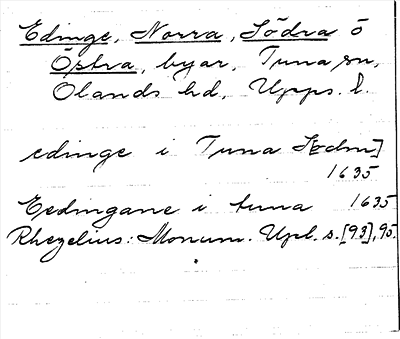 Edinge, Norra, Södra o
Östra, byar, Tuna sn,
Olands hd, Upps. l.
edinge i Tuna S[odn]
1635
Eedingane i tuna 1635
Rhezelius: Monum. Upl. s. [93], 95.